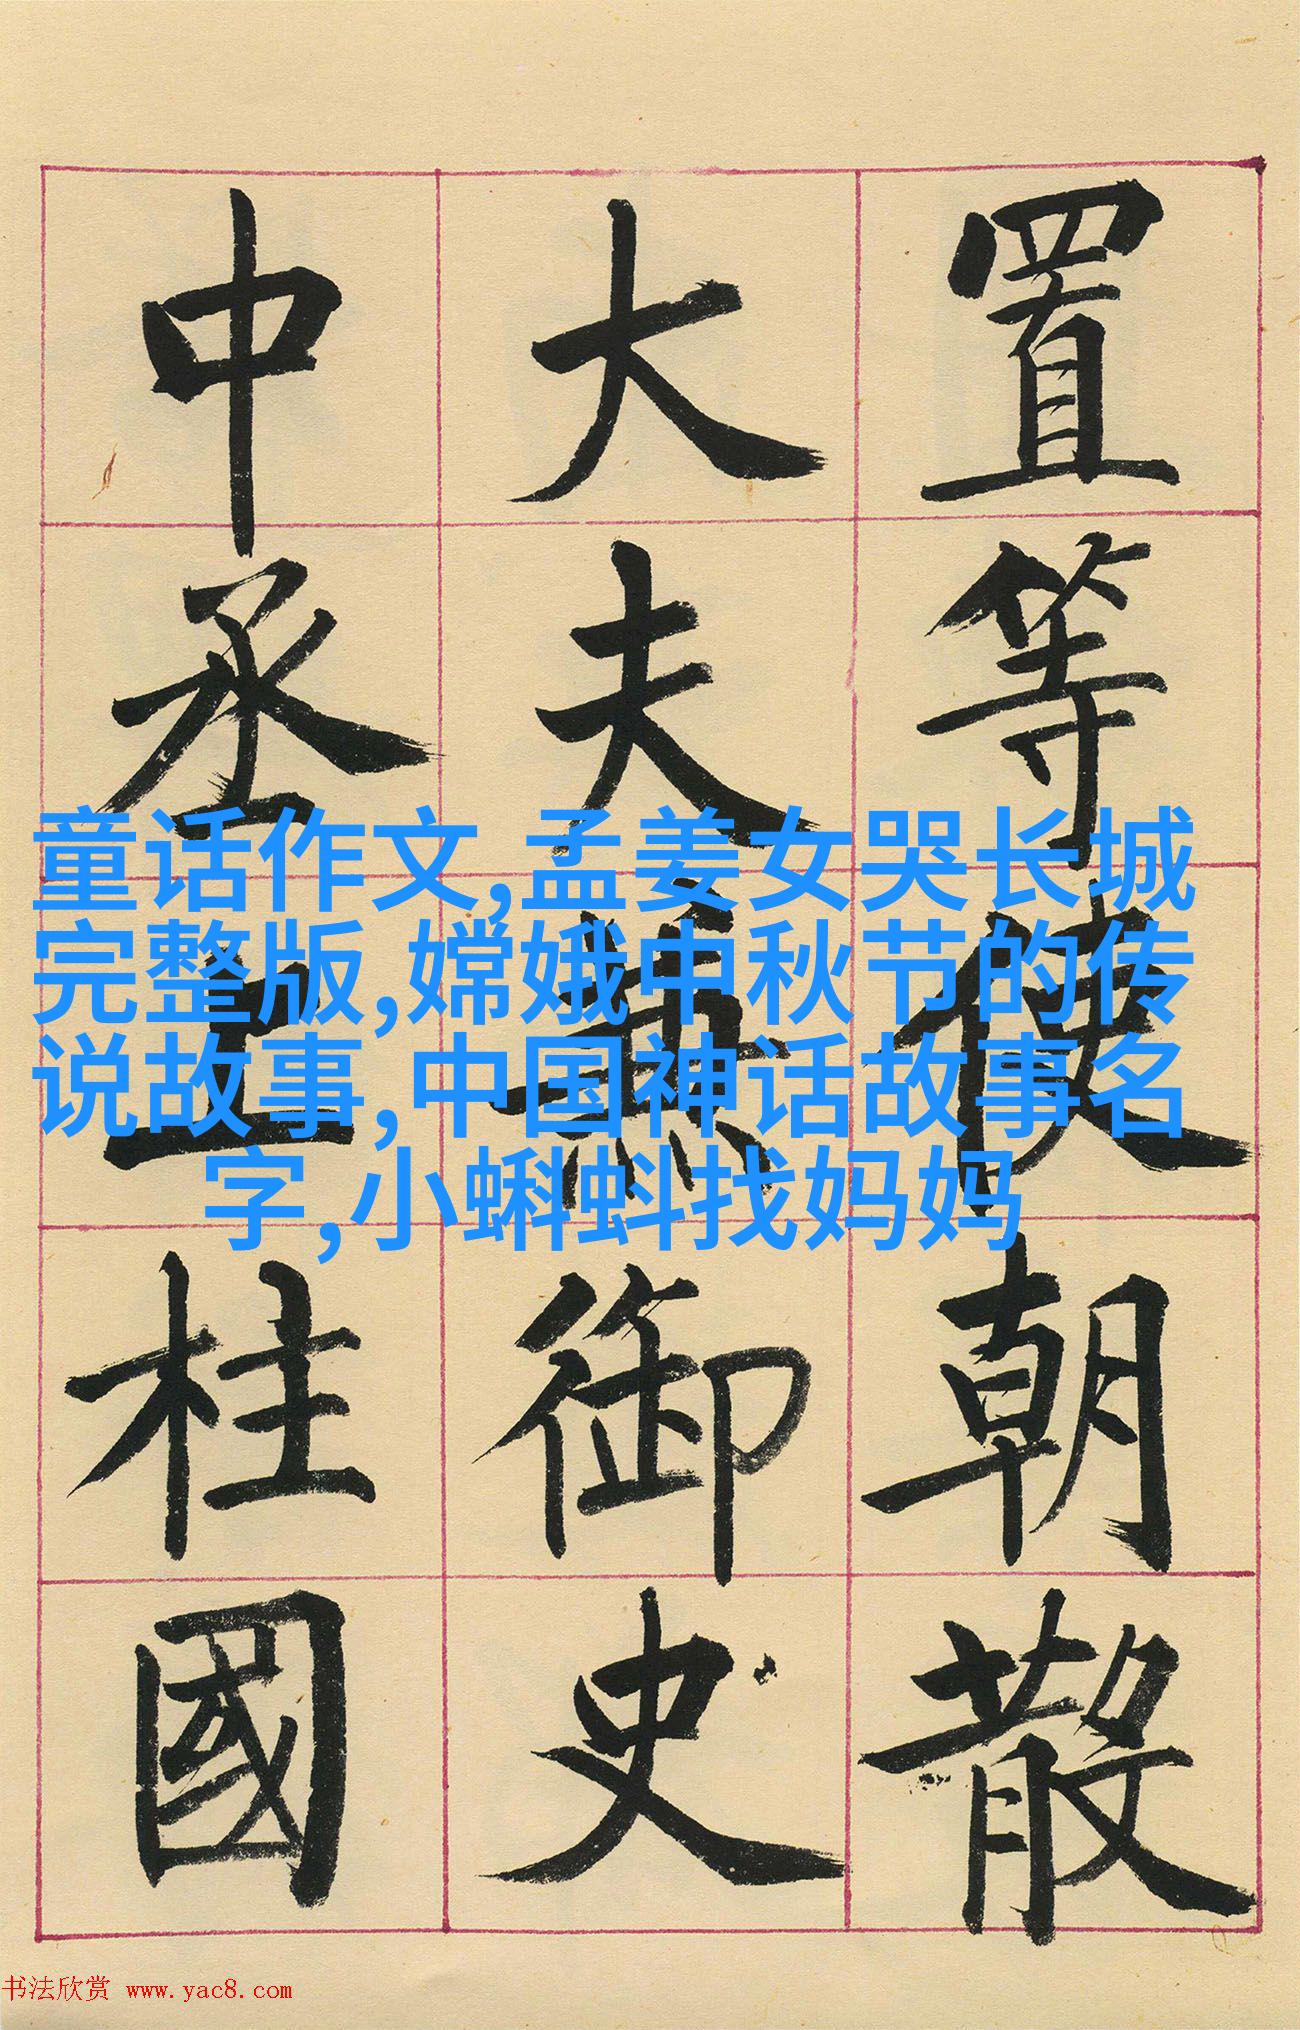 置等使朝散
大夫兼御史
中丞上柱國
童话作文,孟姜女哭长城
完整版,嫦娥中秋节的传
说故事,中国神话故事名
字,小蝌蚪找妈妈
书法欣赏 www.yac8.com